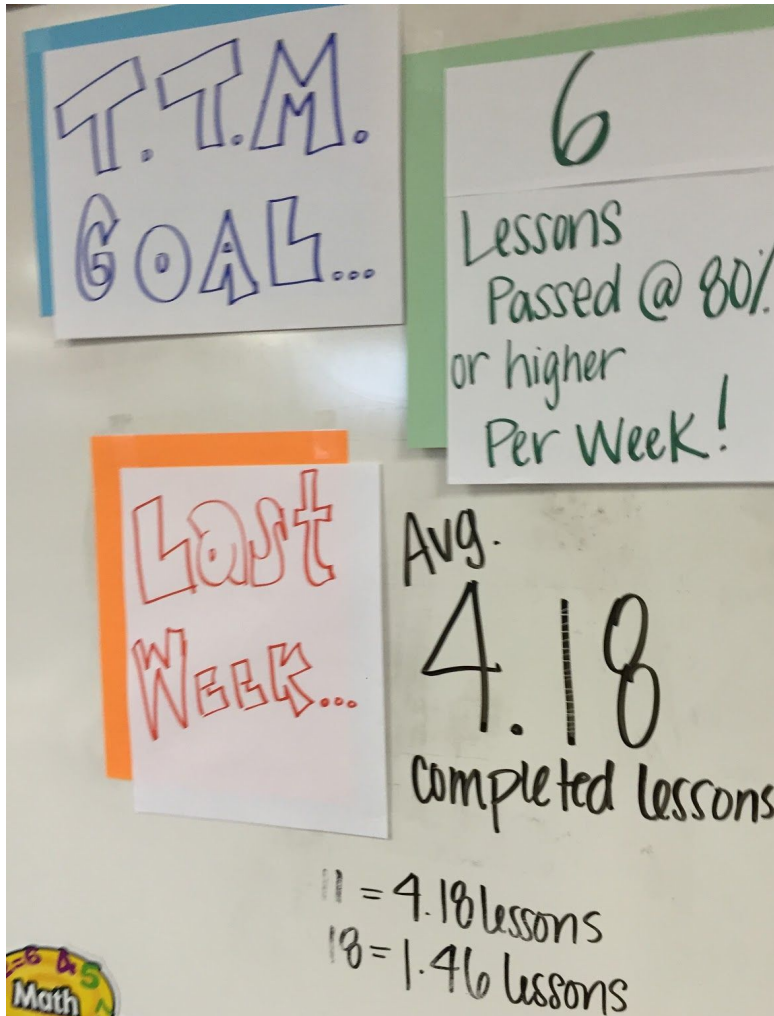 T.T.M.
GOAL...
6
Lessons
Passed @ 80%
or higher
Per Week!
Last
Week...
Avg.
4.18
completed lessons
11 = 4.18 lessons
18 = 1.46 lessons
=6 & 5
Math